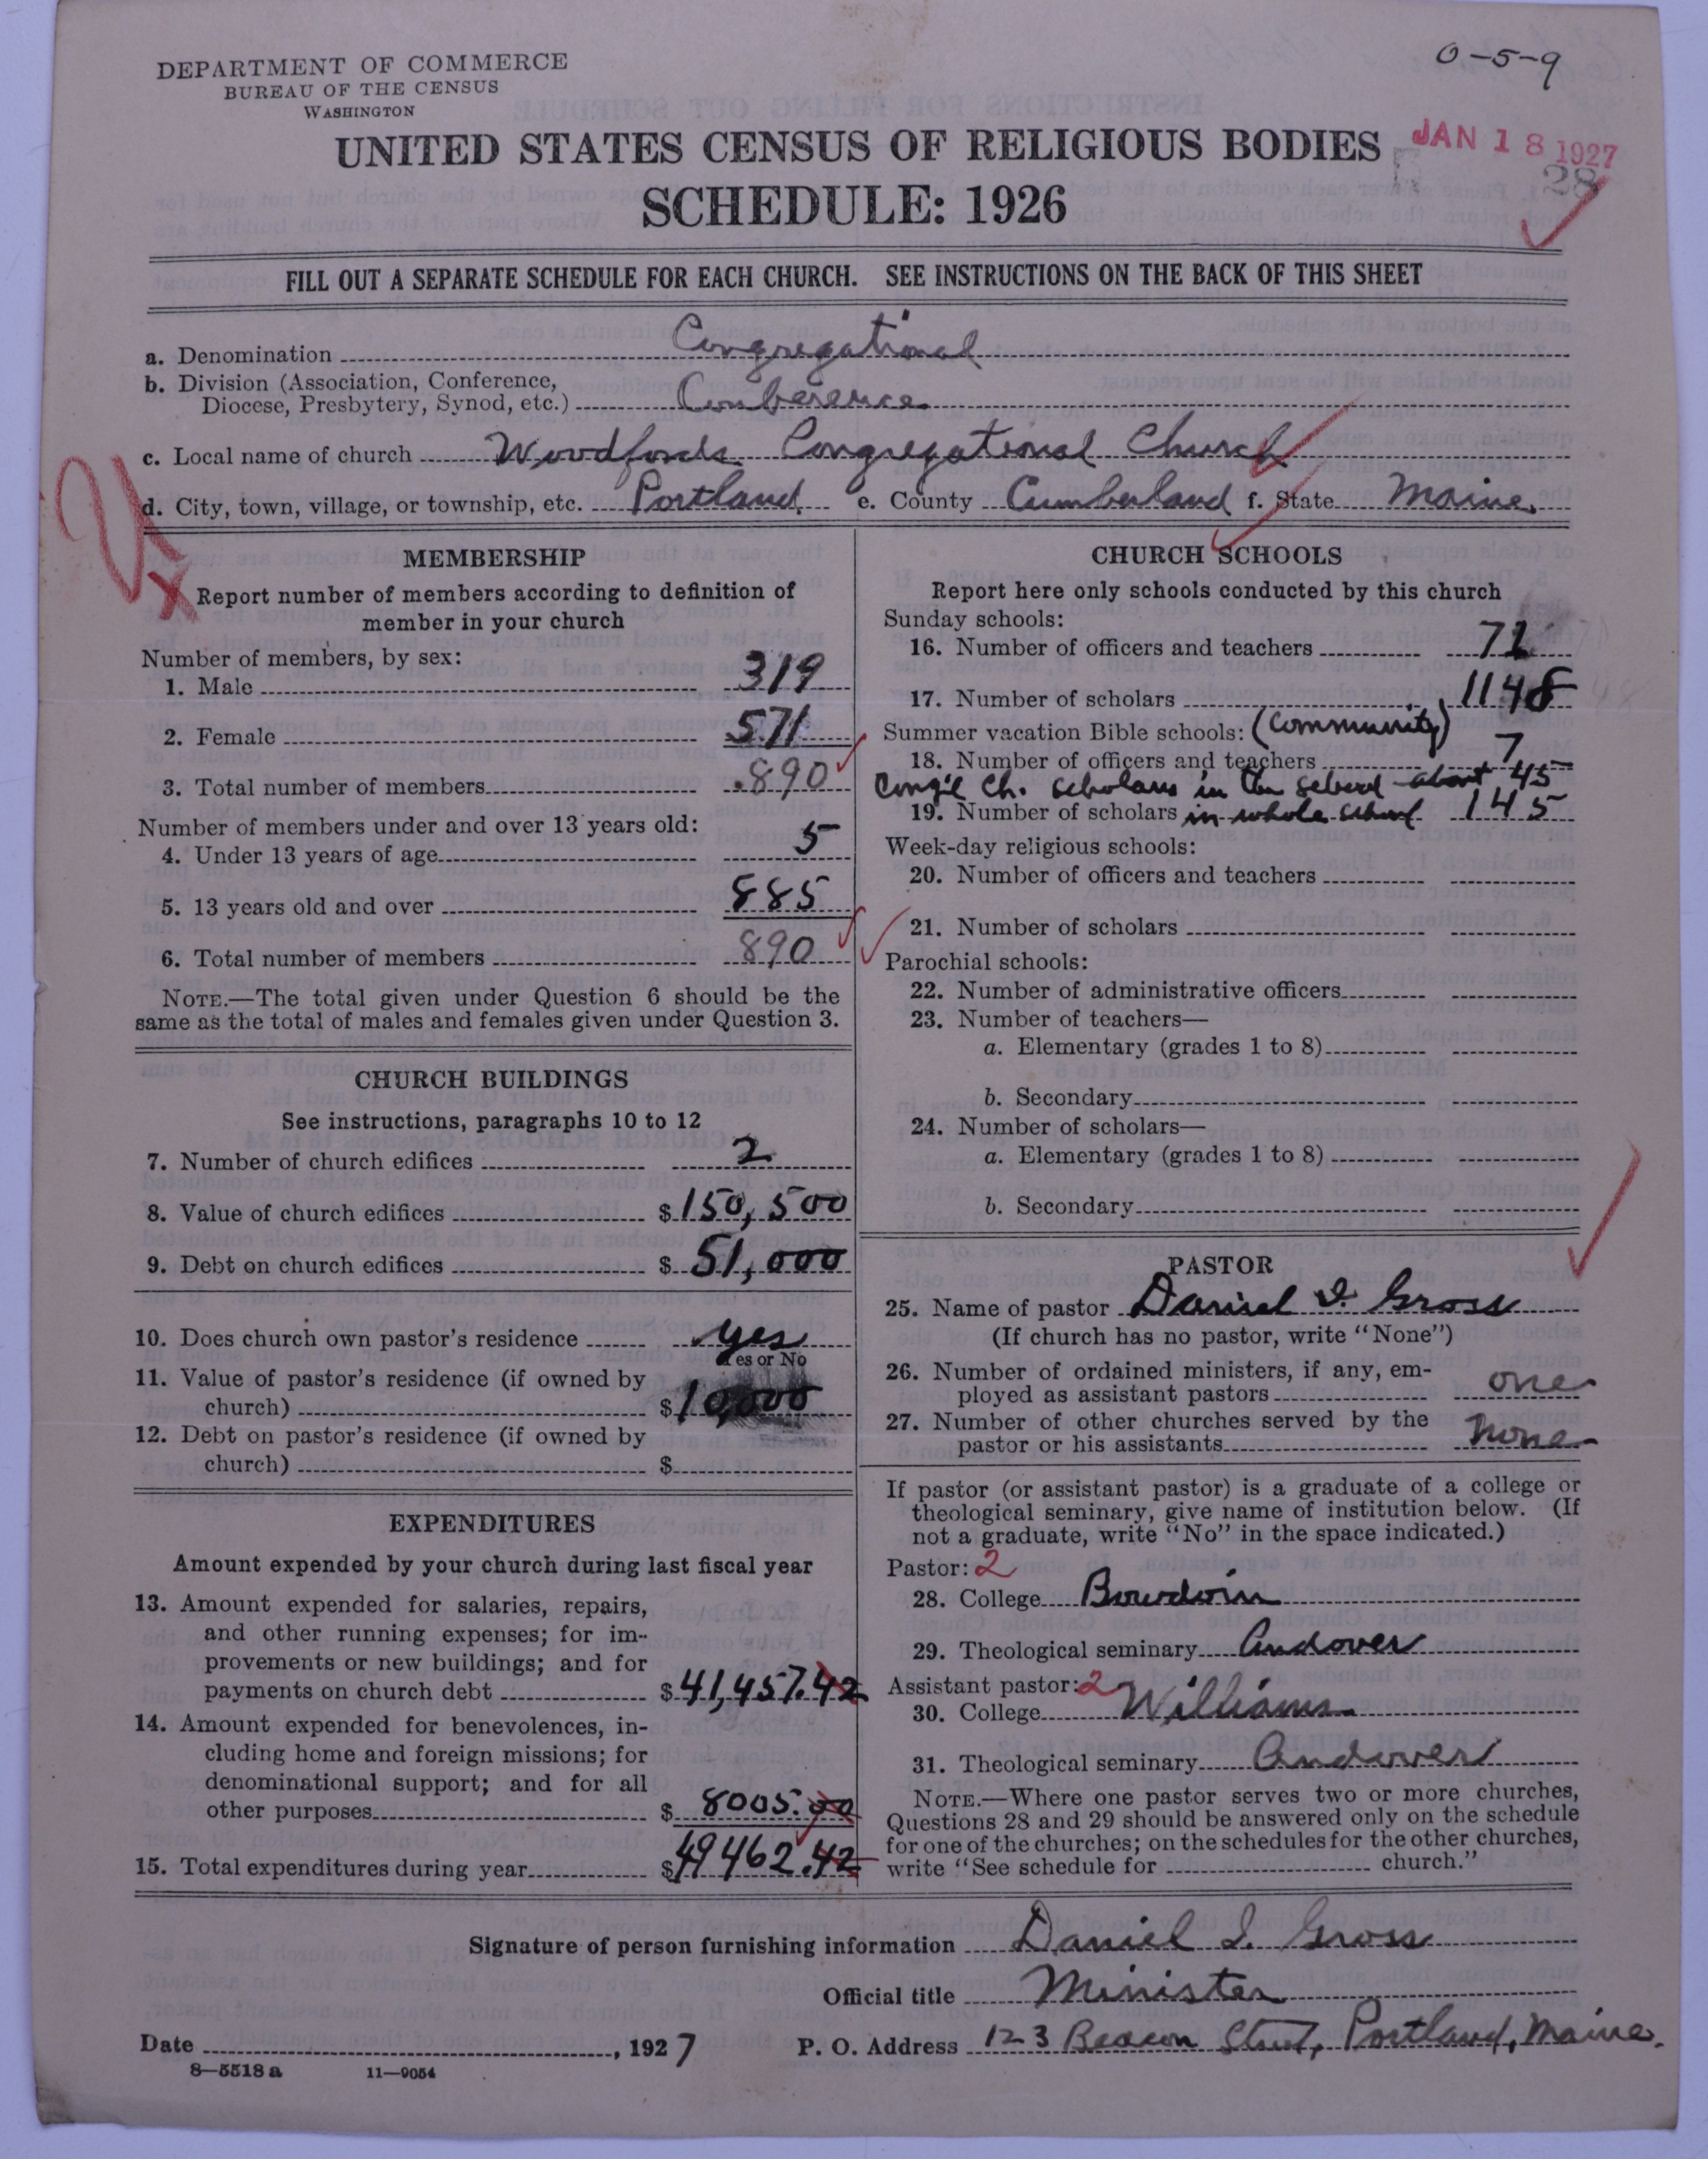 0-5-9
DEPARTMENT OF COMMERCE
BUREAU OF THE CENSUS
WASHINGTON
UNITED STATES CENSUS OF RELIGIOUS BODIES
JAN 18 1927
28
SCHEDULE: 1926
FILL OUT A SEPARATE SCHEDULE FOR EACH CHURCH. SEE INSTRUCTIONS ON THE BACK OF THIS SHEET
a. Denomination Congregational
b. Division (Association, Conference,
Diocese, Presbytery, Synod, etc.) Conference
c. Local name of church Woodfords Congregational Church
d. City, town, village, or township, etc. Portland e. County Cumberland f. State Maine.
MEMBERSHIP
Report number of members according to definition of
member in your church
Number of members, by sex:
1. Male 319
2. Female 571
3. Total number of members 890
Number of members under and over 13 years old:
4. Under 13 years of age 5
5. 13 years old and over 885
6. Total number of members 890
NOTE.—The total given under Question 6 should be the
same as the total of males and females given under Question 3.
CHURCH BUILDINGS
See instructions, paragraphs 10 to 12
7. Number of church edifices 2
8. Value of church edifices $150,500
9. Debt on church edifices $51,000
10. Does church own pastor's residence yes
Yes or No
11. Value of pastor's residence (if owned by
church) $10,000
12. Debt on pastor's residence (if owned by
church) $
EXPENDITURES
Amount expended by your church during last fiscal year
13. Amount expended for salaries, repairs,
and other running expenses; for im-
provements or new buildings; and for
payments on church debt $41,457.42
14. Amount expended for benevolences, in-
cluding home and foreign missions; for
denominational support; and for all
other purposes $8005.00
15. Total expenditures during year $49462.42
CHURCH SCHOOLS
Report here only schools conducted by this church
Sunday schools:
16. Number of officers and teachers 71
17. Number of scholars 1148
Summer vacation Bible schools: (Community)
18. Number of officers and teachers 7
Cong'l Ch. scholars in the school about 45
19. Number of scholars in whole school 145
Week-day religious schools:
20. Number of officers and teachers
21. Number of scholars
Parochial schools:
22. Number of administrative officers
23. Number of teachers—
a. Elementary (grades 1 to 8)
b. Secondary
24. Number of scholars—
a. Elementary (grades 1 to 8)
b. Secondary
PASTOR
25. Name of pastor Daniel I. Gross
(If church has no pastor, write "None")
26. Number of ordained ministers, if any, em-
ployed as assistant pastors one
27. Number of other churches served by the
pastor or his assistants none
If pastor (or assistant pastor) is a graduate of a college or
theological seminary, give name of institution below. (If
not a graduate, write "No" in the space indicated.)
Pastor: 2
28. College Bowdoin
29. Theological seminary Andover
Assistant pastor: 2
30. College Williams
31. Theological seminary Andover
NOTE.—Where one pastor serves two or more churches,
Questions 28 and 29 should be answered only on the schedule
for one of the churches; on the schedules for the other churches,
write "See schedule for church."
Signature of person furnishing information Daniel I. Gross
Official title Minister
Date , 1927 P. O. Address 123 Beacon Street, Portland, Maine.
8—5518a 11—9054